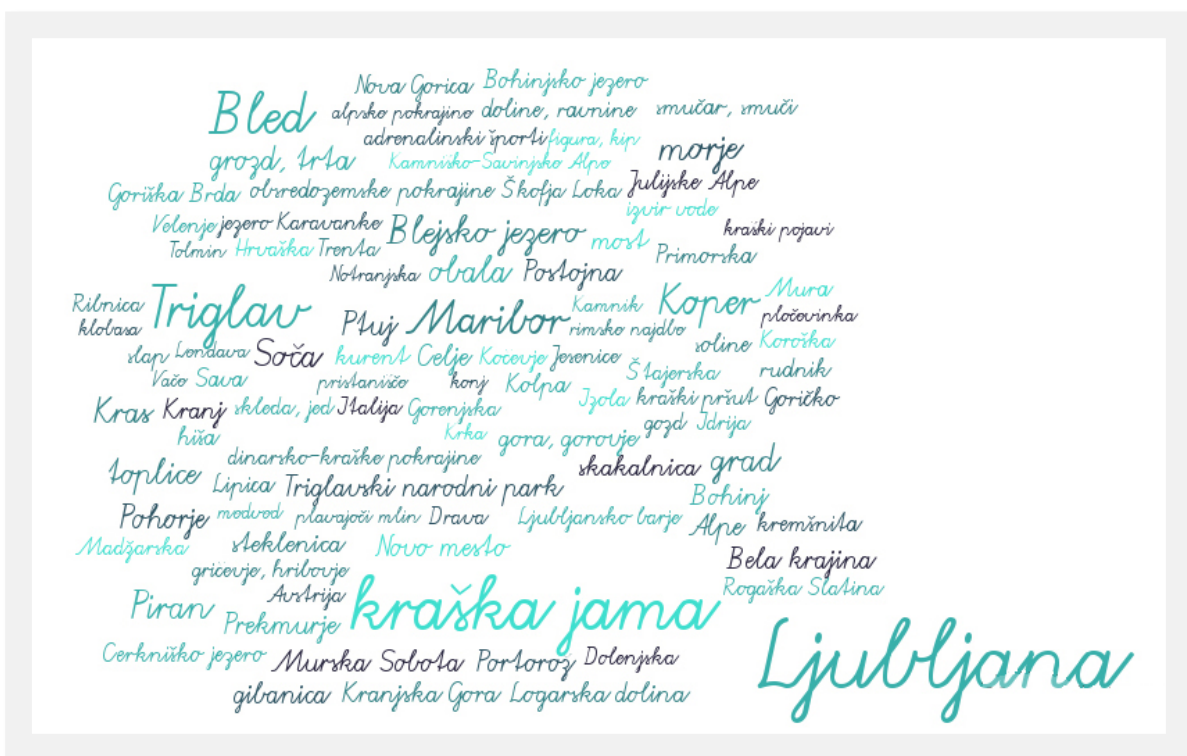 Nova Gorica Bohinjsko jezero
Bled alpske pokrajine doline, ravnine smučar, smuči
adrenalinski športi figura, kip
grozd, trta Kamniško-Savinjske Alpe morje
Goriška Brda obsredozemske pokrajine Škofja Loka Julijske Alpe
izvir vode
Velenje jezero Karavanke Blejsko jezero most kraški pojavi
Tolmin Hrvaška Trenta Primorska
Notranjska obala Postojna
Ribnica Triglav Kamnik Koper Mura
klobasa Ptuj Maribor rimske najdbe pločevinka
slap Lendava Soča kurent Celje Kočevje Jesenice soline Koroška
Vače Sava pristanišče konj Kolpa Štajerska rudnik
Kras Kranj skleda, jed Italija Gorenjska Izola kraški pršut Goričko
hiša Krka gora, gorovje gozd Idrija
dinarsko-kraške pokrajine skakalnica grad
toplice Lipica Triglavski narodni park Bohinj
Pohorje medved plavajoči mlin Drava Ljubljansko barje Alpe kremšnita
Madžarska steklenica Novo mesto
Bela krajina
gričevje, hribovje
Rogaška Slatina
Avstrija
Piran Prekmurje kraška jama
Ljubljana
Cerkniško jezero Murska Sobota Portorož Dolenjska
gibanica Kranjska Gora Logarska dolina